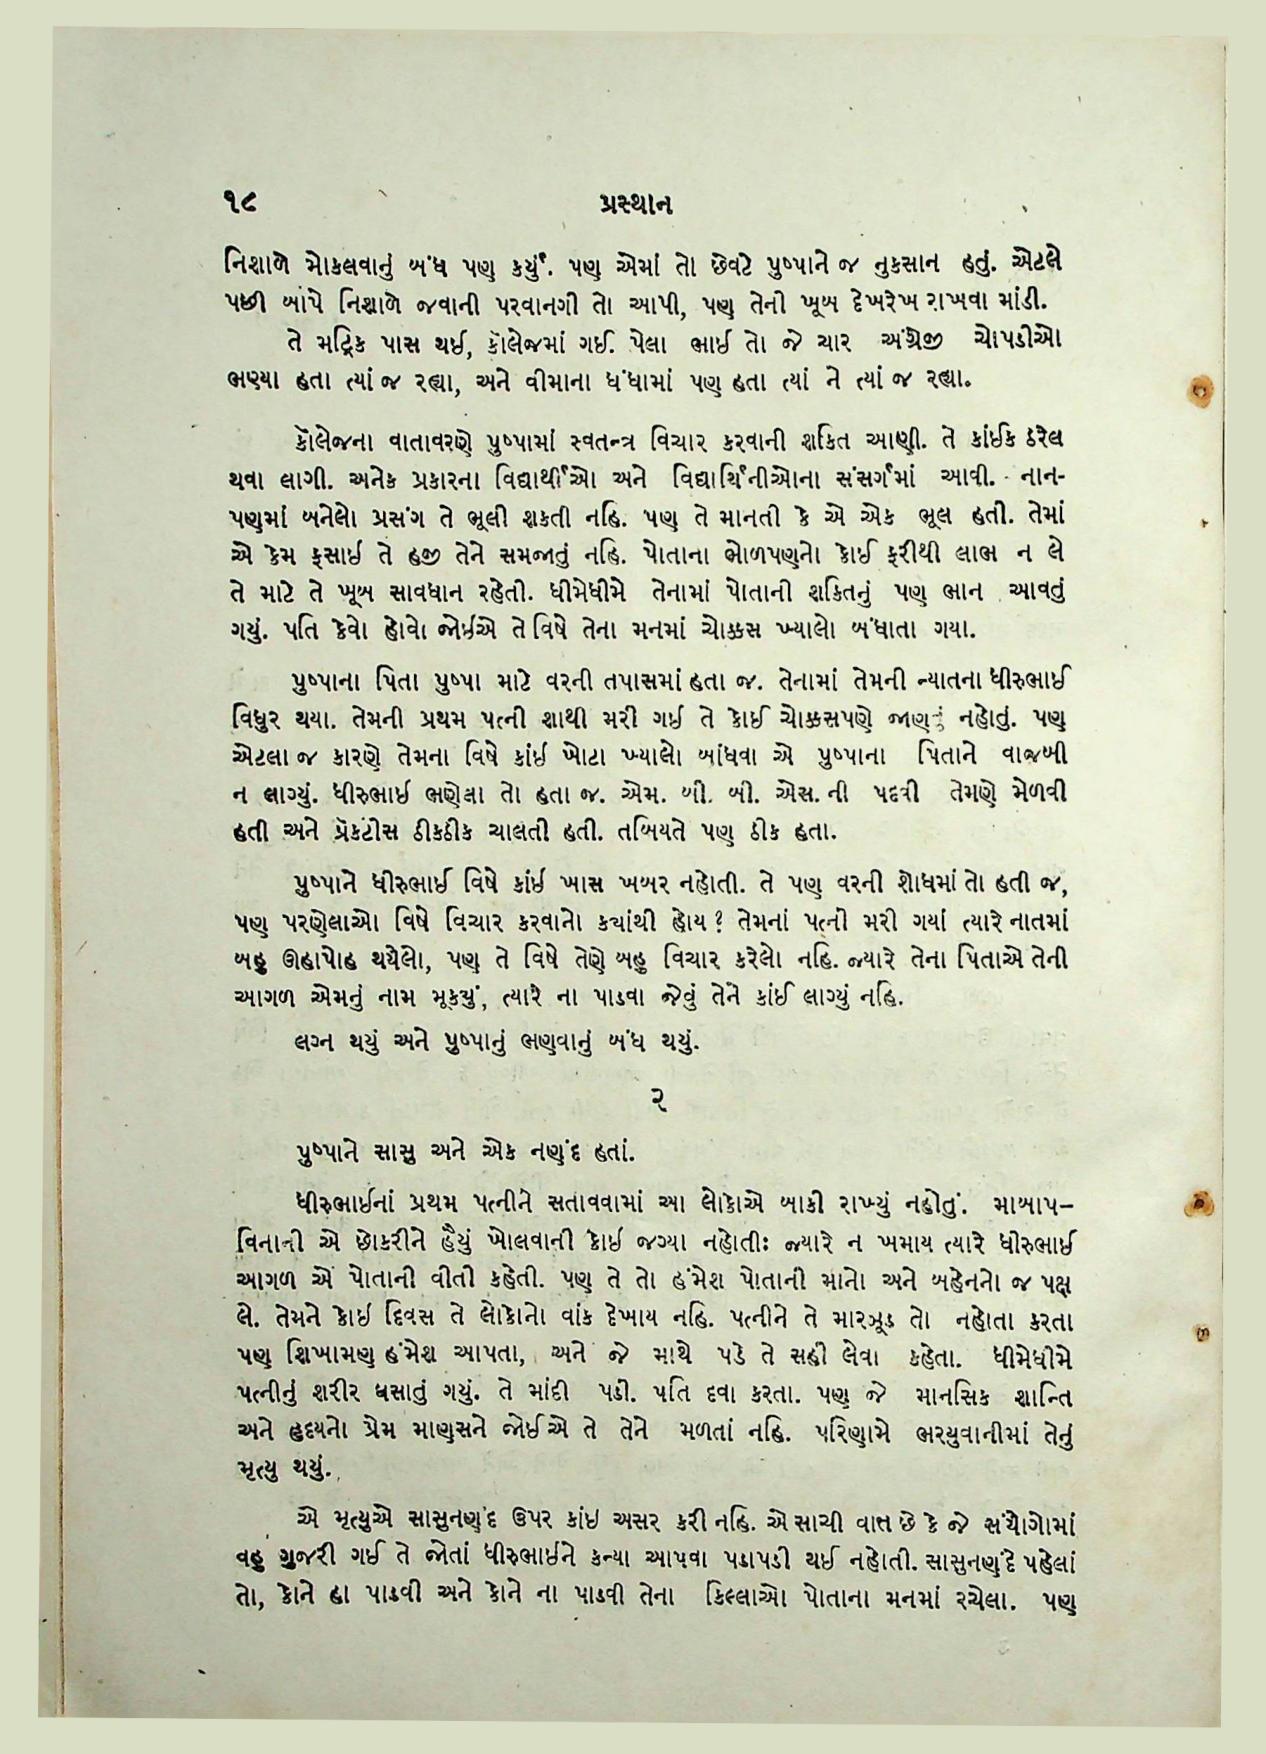 ૧૮
પ્રસ્થાન
નિશાળે મોકલવાનું બંધ પણ કર્યું. પણ એમાં તો છેવટે પુષ્પાને જ નુકસાન હતું. એટલે
પછી બાપે નિશાળે જવાની પરવાનગી તો આપી, પણ તેની ખૂબ દેખરેખ રાખવા માંડી.
તે મટ્રિક પાસ થઇ, કૉલેજમાં ગઈ. પેલા ભાઈ તો જે ચાર અંગ્રેજી ચોપડીઓ
ભણ્યા હતા ત્યાં જ રહ્યા, અને વીમાના ધંધામાં પણ હતા ત્યાં ને ત્યાં જ રહ્યા.
કૉલેજના વાતાવરણે પુષ્પામાં સ્વતન્ત્ર વિચાર કરવાની શકિત આણી. તે કાંઈક ઠરેલ
થવા લાગી. અનેક પ્રકારના વિદ્યાર્થીઓ અને વિદ્યાર્થિનીઓના સંસર્ગમાં આવી. નાન-
પણુમાં બનેલો પ્રસંગ તે ભૂલી શકતી નહિ. પણ તે માનતી કે એ એક ભૂલ હતી. તેમાં
એ કેમ ફસાઇ તે હજી તેને સમજાતું નહિ. પોતાના ભોળપણનો કોઈ ફરીથી લાભ ન લે
તે માટે તે ખૂબ સાવધાન રહેતી. ધીમેધીમે તેનામાં પોતાની શકિતનું પણ ભાન આવતું
ગયું. પતિ કેવો હોવો જોઈએ તે વિષે તેના મનમાં ચોક્કસ ખ્યાલો બંધાતા ગયા.
પુષ્પાના પિતા પુષ્પા માટે વરની તપાસમાં હતા જ. તેનામાં તેમની ન્યાતના ધીરુભાઈ
વિધુર થયા. તેમની પ્રથમ પત્ની શાથી મરી ગઇ તે કોઈ ચોક્કસપણે જાણતું નહોતું. પણ
એટલા જ કારણે તેમના વિષે કાંઇ ખોટા ખ્યાલો બાંધવા એ પુષ્પાના પિતાને વાજબી
ન લાગ્યું. ધીરુભાઇ ભણેલા તો હતા જ. એમ. બી. બી. એસ. ની પદવી તેમણે મેળવી
હતી અને પ્રૅકટીસ ઠીકઠીક ચાલતી હતી. તબિયતે પણ ઠીક હતા.
પુષ્પાને ધીરુભાઈ વિષે કાંઇ ખાસ ખબર નહોતી. તે પણ વરની શોધમાં તો હતી જ,
પણ પરણેલાઓ વિષે વિચાર કરવાનો કયાંથી હોય? તેમનાં પત્ની મરી ગયાં ત્યારે નાતમાં
બહુ ઊહાપોહ થયેલો, પણ તે વિષે તેણે બહુ વિચાર કરેલો નહિ. જ્યારે તેના પિતાએ તેની
આગળ એમનું નામ મૂકયું, ત્યારે ના પાડવા જેવું તેને કાંઈ લાગ્યું નહિ.
લગ્ન થયું અને પુષ્પાનું ભણવાનું બંધ થયું.
૨
પુષ્પાને સાસુ અને એક નણંદ હતાં.
ધીરુભાઇનાં પ્રથમ પત્નીને સતાવવામાં આ લોકોએ બાકી રાખ્યું નહોતું. માબાપ–
વિનાની એ છોકરીને હૈયું ખોલવાની કોઇ જગ્યા નહોતીઃ જ્યારે ન ખમાય ત્યારે ધીરુભાઈ
આગળ એ પોતાની વીતી કહેતી. પણ તે તો હંમેશ પોતાની માનો અને બહેનનો જ પક્ષ
લે. તેમને કોઇ દિવસ તે લોકોનો વાંક દેખાય નહિ. પત્નીને તે મારઝૂડ તો નહોતા કરતા
પણ શિખામણ હંમેશ આપતા, અને જે માથે પડે તે સહી લેવા કહેતા. ધીમેધીમે
પત્નીનું શરીર ઘસાતું ગયું. તે માંદી પડી. પતિ દવા કરતા. પણ જે માનસિક શાન્તિ
અને હૃદયનો પ્રેમ માણસને જોઈએ તે તેને મળતાં નહિ. પરિણામે ભરયુવાનીમાં તેનું
મૃત્યુ થયું.
એ મૃત્યુએ સાસુનણંદ ઉપર કાંઇ અસર કરી નહિ. એ સાચી વાત છે કે જે સંયોગોમાં
વહુ ગુજરી ગઈ તે જોતાં ધીરુભાઇને કન્યા આપવા પડાપડી થઈ નહોતી. સાસુનણંદે પહેલાં
તો, કોને હા પાડવી અને કોને ના પાડવી તેના કિલ્લાઓ પોતાના મનમાં રચેલા. પણ